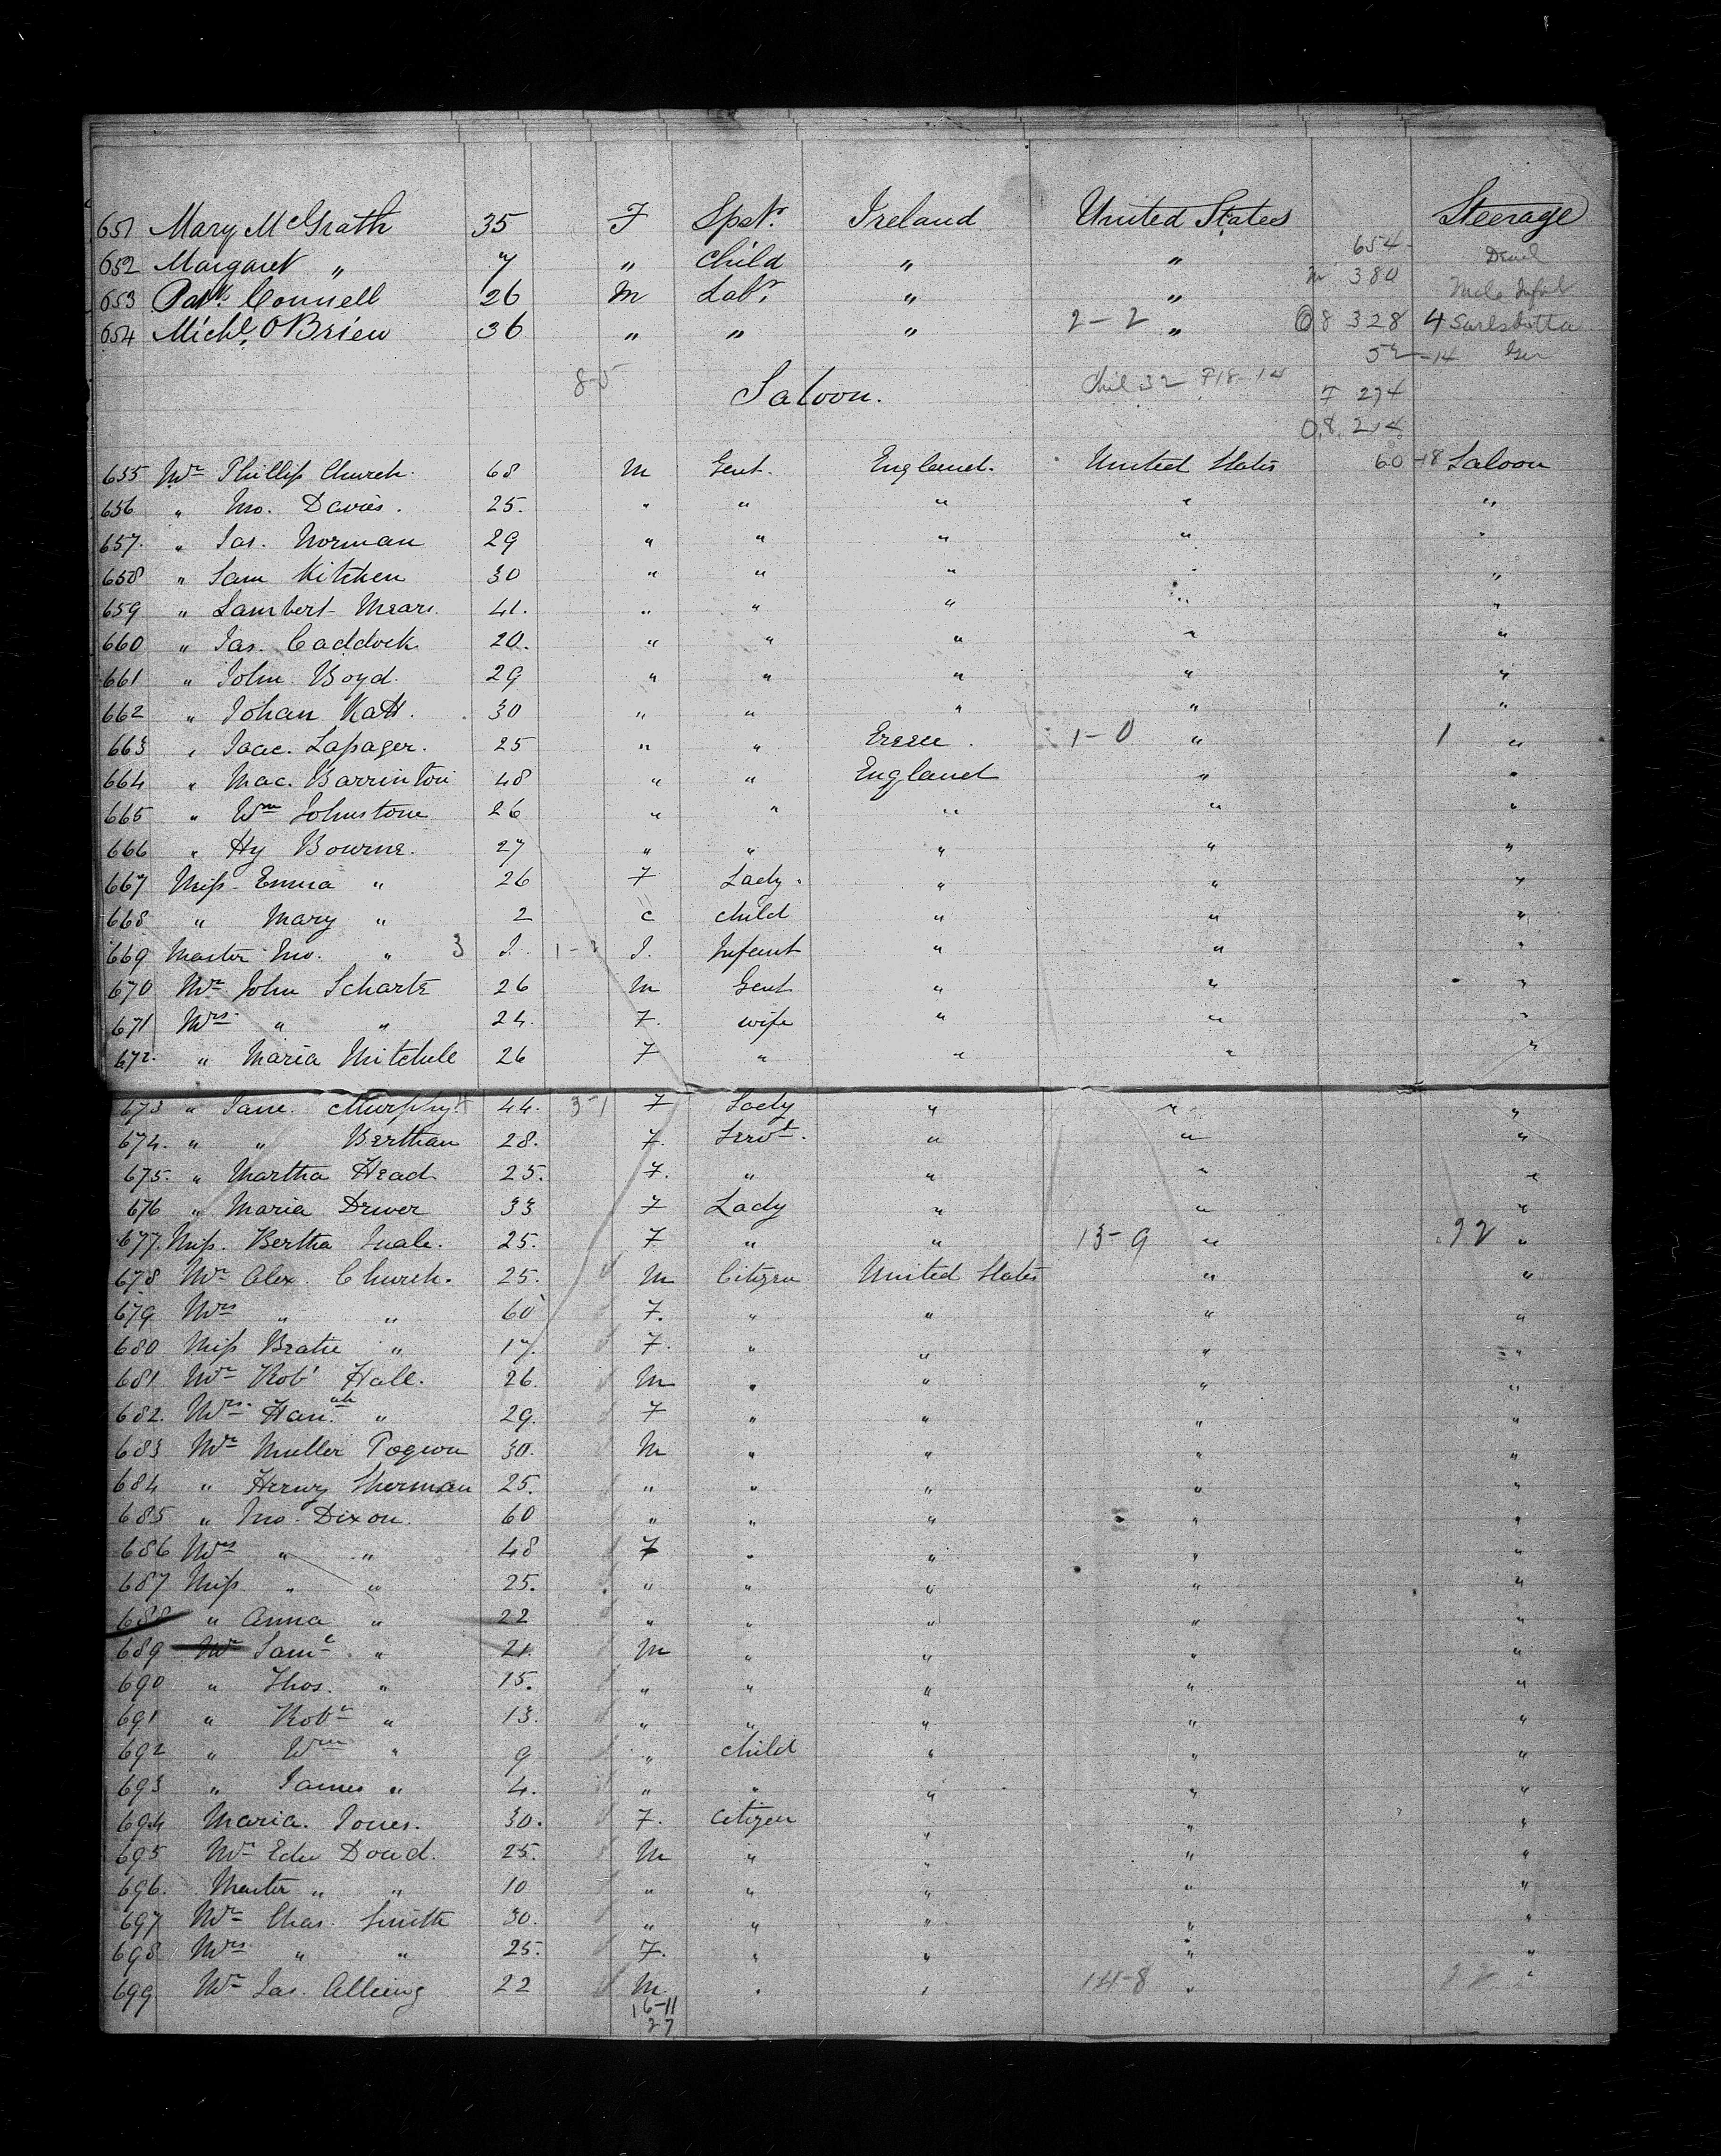 651 Mary McGrath 35 F Spstr Ireland United States Steerage
652 Margaret " 7 " Child " " 654 Dead
653 Patk. Connell 26 M Labr. " " m 380 Male Infnt
654 Michl. O'Brien 36 " " " 2-2 " 8 328 4
52-14
8-5 Saloon. Chil 32 F18-14
F 274
0.8. 214
655 Mr Phillip Church. 68 M Gent. England. United States 60 -18 Saloon
656 " Jno. Davies. 25. " " " " "
657. " Jas. Norman 29 " " " " "
658 " Sam Kitchen 30 " " " " "
659 " Lambert Mears. 41. " " " " "
660 " Jas. Caddock 20. " " " " "
661 " John Boyd. 29 " " " " "
662 " Johan Katt. 30 " " " " "
663 " Isac. Lapager. 25 " " 1-0 " 1 "
664 " Mac. Barrinton 48 " " England " "
665 " Wm Johnstone 26 " " " " "
666 " Hy Bourne. 27 " " " " "
667 Miss Emma " 26 F Lady. " " "
668 " Mary " 2 c child " " "
669 Master Jno. " 3 I. I. Infant " " "
670 Mr John Schartz 26 M Gent " " "
671 Mrs. " " 24. F. wife " " "
672. " Maria Mitchele 26 F " " " "
673 " Jane. Murphy 44. 3-1 F Lady " " "
674. " " Berthan 28. F. Servt. " " "
675. " Martha Head 25. F. " " " "
676 " Maria Driver 33 F Lady " " "
677. Miss. Bertha 25. F. " " 13-9 " 22 "
678 Mr Alex. Church. 25. M Citizen United States " "
679 Mrs " " 60 F. " " " "
680 Miss Bratie " 17. F. " " " "
681 Mr Robt Hall. 26. M " " " "
682. Mrs. Han.ah " 29. F " " " "
683 Mr Muller Pogson 30. M " " " "
684 " Henry Sherman 25. " " " " "
685 " Jno. Dixon. 60 " " " " "
686 Mrs " " 48 F " " " "
687 Miss " " 25. " " " " "
688 " Anna " 22 " " " " "
689 Mr Saml. " 21. M " " " "
690 " Thos. " 15. " " " " "
691 " Robt " 13. " " " " "
692 " Wm " 9 " child " " "
693 " James " 4. " " " " "
694 Maria. Jones. 30. F. Citizen " " "
695 Mr Edw Doud. 25. M " " " "
696. Master " " 10 " " " " "
697 Mr Chas. Smith 30. " " " " "
698 Mrs " " 25. F. " " " "
699 Mr Jas. Alleing 22 M. " " 14-8 " 22 "
16-11
27